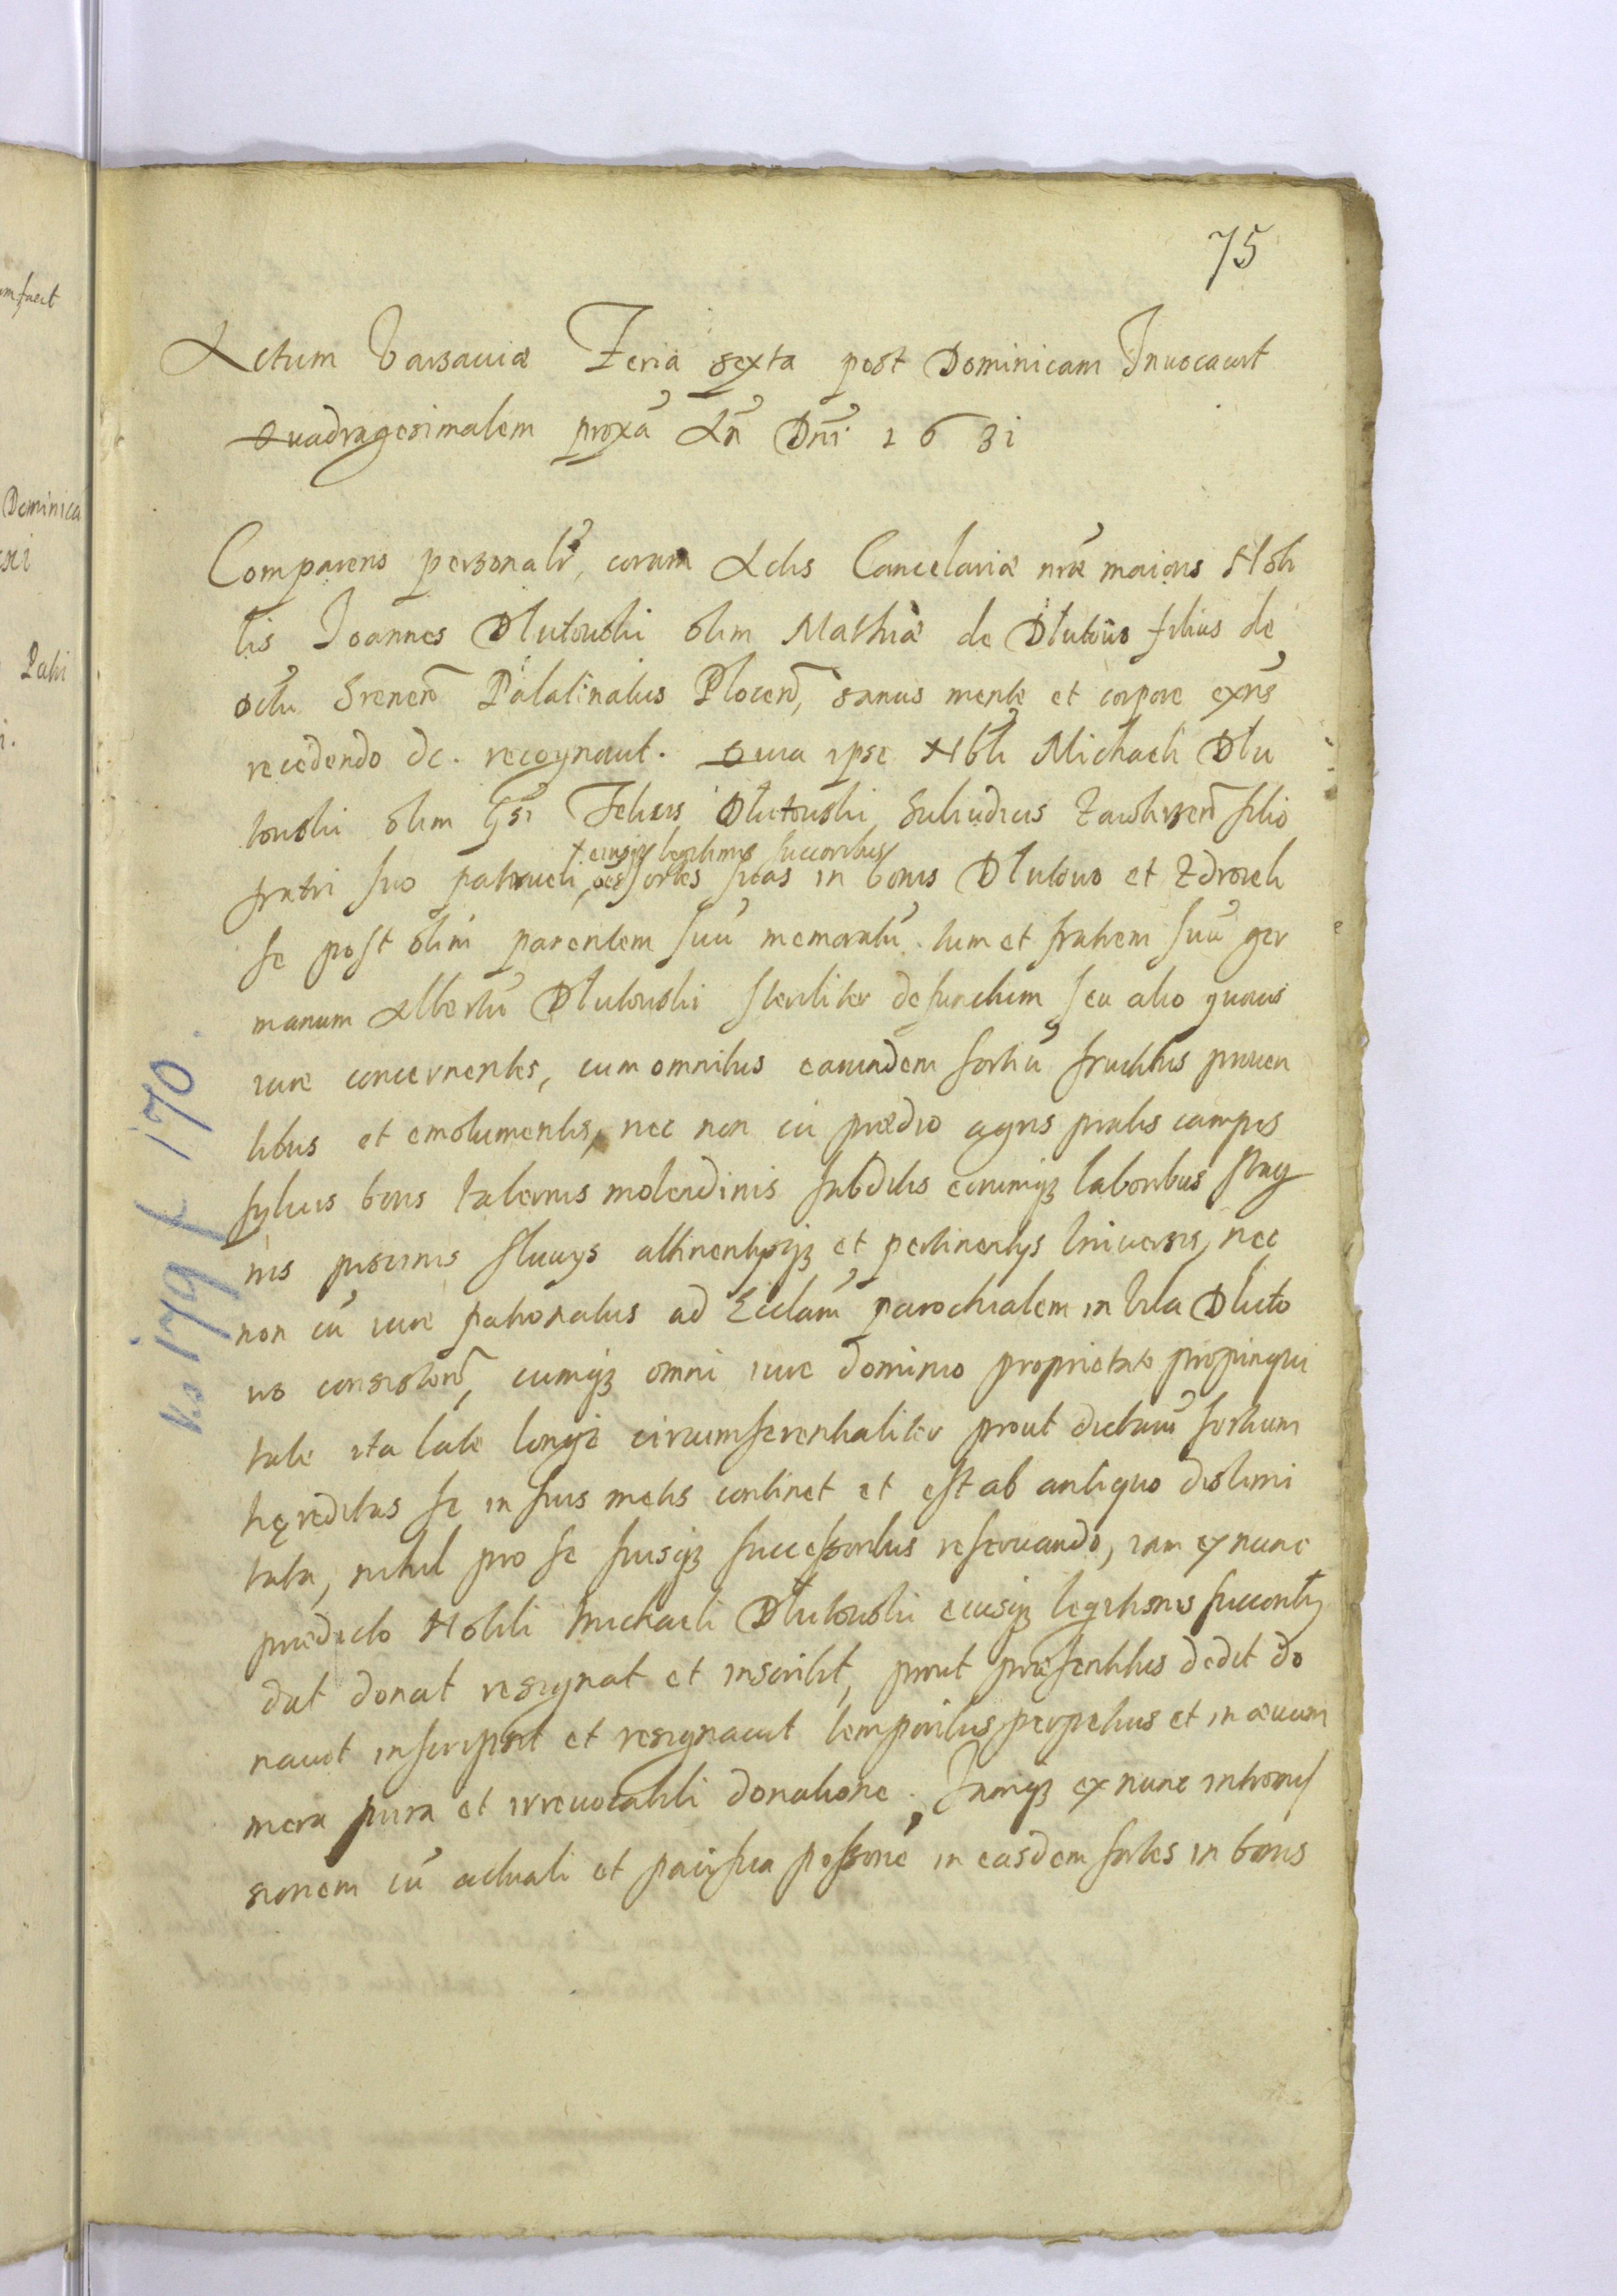 75
Actum Varsauiæ Feria sexta post Dominicam Inuocauit
Quadragesimalem proxã Añ Dñi 1631
Comparens personalr̃, coram Actis Cancelariæ nr̃æ maioris Nobi
lis Joannes Dlutowski olim Mathiæ de Dlutowo filius de
distri Srenen̄ Palatinatus Plocen̄, sanus mente et corpore exñs
recedendo &c. recognouit. Quia ipse Nobli Michaeli Dlu
towski olim Gsi Felicis Dlutowski Subiudicis Zawkrzen̄ filio
+ eiusq̃ legitimis succoribus
fratri suo patrueli, oẽs sortes suas in bonis Dlutowo et Zdroiek
se post olim parentem suũ memoratũ. tum et fratrem suũ ger
manum Albertũ Dlutowski steriliter defunctum seu alio quouis
iure concernentes, cum omnibus earundem sortiũ fructibus prouen
tibus et emolumentis, nec non cũ prædio agris pratis campis
syluis boris tabernis molendinis subditis eorumq̃ laboribus stag
nis piscinis fluuys attinentysq̃ et pertinentys Vniuersis, nec
non cũ iure patronatus ad Ecclam̃ parochialem in Villa Dluto
wo consisten̄, cumq̃ omni iure dominio proprietate propinqui
tate ita late longe circumferentialiter prout dictarũ sortium
hęreditas se in suis metis continet et est ab antiquo dislimi
tata, nihil pro se suisq̃ successoribus reseruando, iam ex nunc
prædicto Nobili Michaeli Dlutowski eiusq̃ legitimis succoribus
dat donat resignat et inscribit, prout præsentibus dedit do
nauit inscripsit et resignauit temporibus perpetuis et in æuum
mera pura et irreuocabili donatione. Iamq̃ ex nunc intromis
sionem cũ actuali et pacifica possone in easdem sortes in bonis
Ks 179 f 170.
Dominica